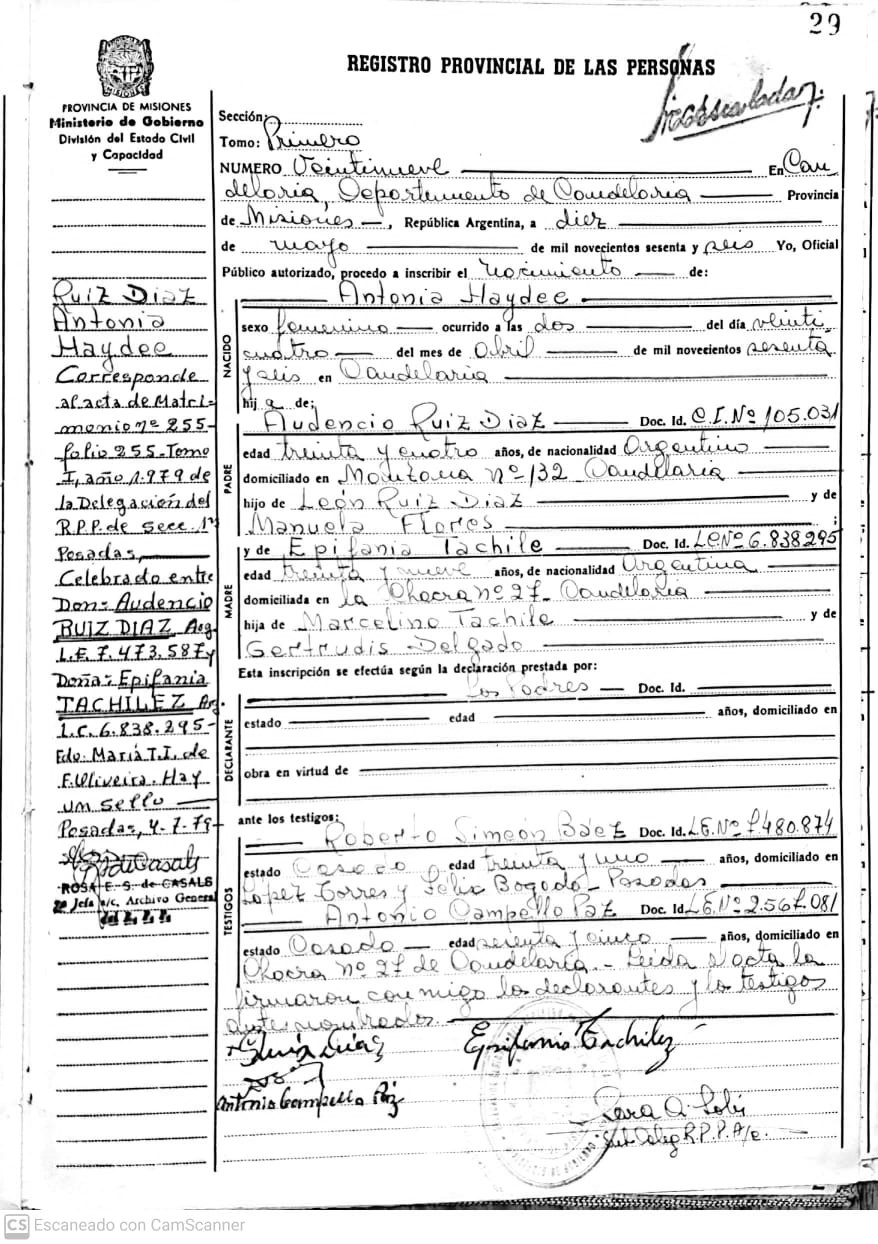 29
REGISTRO PROVINCIAL DE LAS PERSONAS
PROVINCIA DE MISIONES
Ministerio de Gobierno
División del Estado Civil
y Capacidad
Sección:
Tomo: Primero
NUMERO Veintinueve En Can
delaria, Departamento de Candelaria Provincia
de Misiones, República Argentina, a diez
de mayo de mil novecientos sesenta y seis Yo, Oficial
Público autorizado, procedo a inscribir el nacimiento de:
Antonia Haydee
NACIDO
sexo femenino ocurrido a las dos del día veinti
cuatro del mes de Abril de mil novecientos sesenta
y seis en Candelaria
hij a de:
PADRE
Audencio Ruiz Diaz Doc. Id. C.I. Nº 105.031
edad treinta y cuatro años, de nacionalidad Argentino
domiciliado en Manzana nº 132 Candelaria
hijo de León Ruiz Diaz y de
Manuela Flores ;
MADRE
y de Epifania Tachile Doc. Id. LC Nº 6.838295
edad treinta y nueve años, de nacionalidad Argentina
domiciliada en la Chacra nº 27 Candelaria
hija de Marcelino Tachile y de
Gertrudis Delgado
Esta inscripción se efectúa según la declaración prestada por:
Los Padres Doc. Id.
DECLARANTE
estado edad años, domiciliado en
obra en virtud de
ante los testigos:
TESTIGOS
Roberto Simeón Báez Doc. Id. L.E. Nº 7.480.874
estado Casado edad treinta y uno años, domiciliado en
Lopez Torres y Félix Bogado - Posadas
Antonio Campello Paz Doc. Id. L.E. Nº 2.567.081
estado Casado edad sesenta y cinco años, domiciliado en
Chacra nº 27 de Candelaria - Leida el acta la
firmaron conmigo los declarantes y los testigos
ante nombrados
Epifania Tachilez
Antonio Campello Paz
RUIZ DIAZ
Antonia
Haydee
Corresponde
al acta de Matri-
monio nº 255-
folio 255-Tomo
I, año 1.979 de
la Delegación del
R.P.P. de Secc. 1ª
Posadas,
Celebrado entre
Don: Audencio
RUIZ DIAZ Arg.
L.E. 7.473.587 y
Doña: Epifania
TACHILEZ Arg.
L.C. 6.838.295-
Fdo: María T.I. de
F. Oliveira. Hay
un sello
Posadas, 4-7-79-
ROSA E. S. de CASALS
2ª Jefa a/c. Archivo General
CS Escaneado con CamScanner